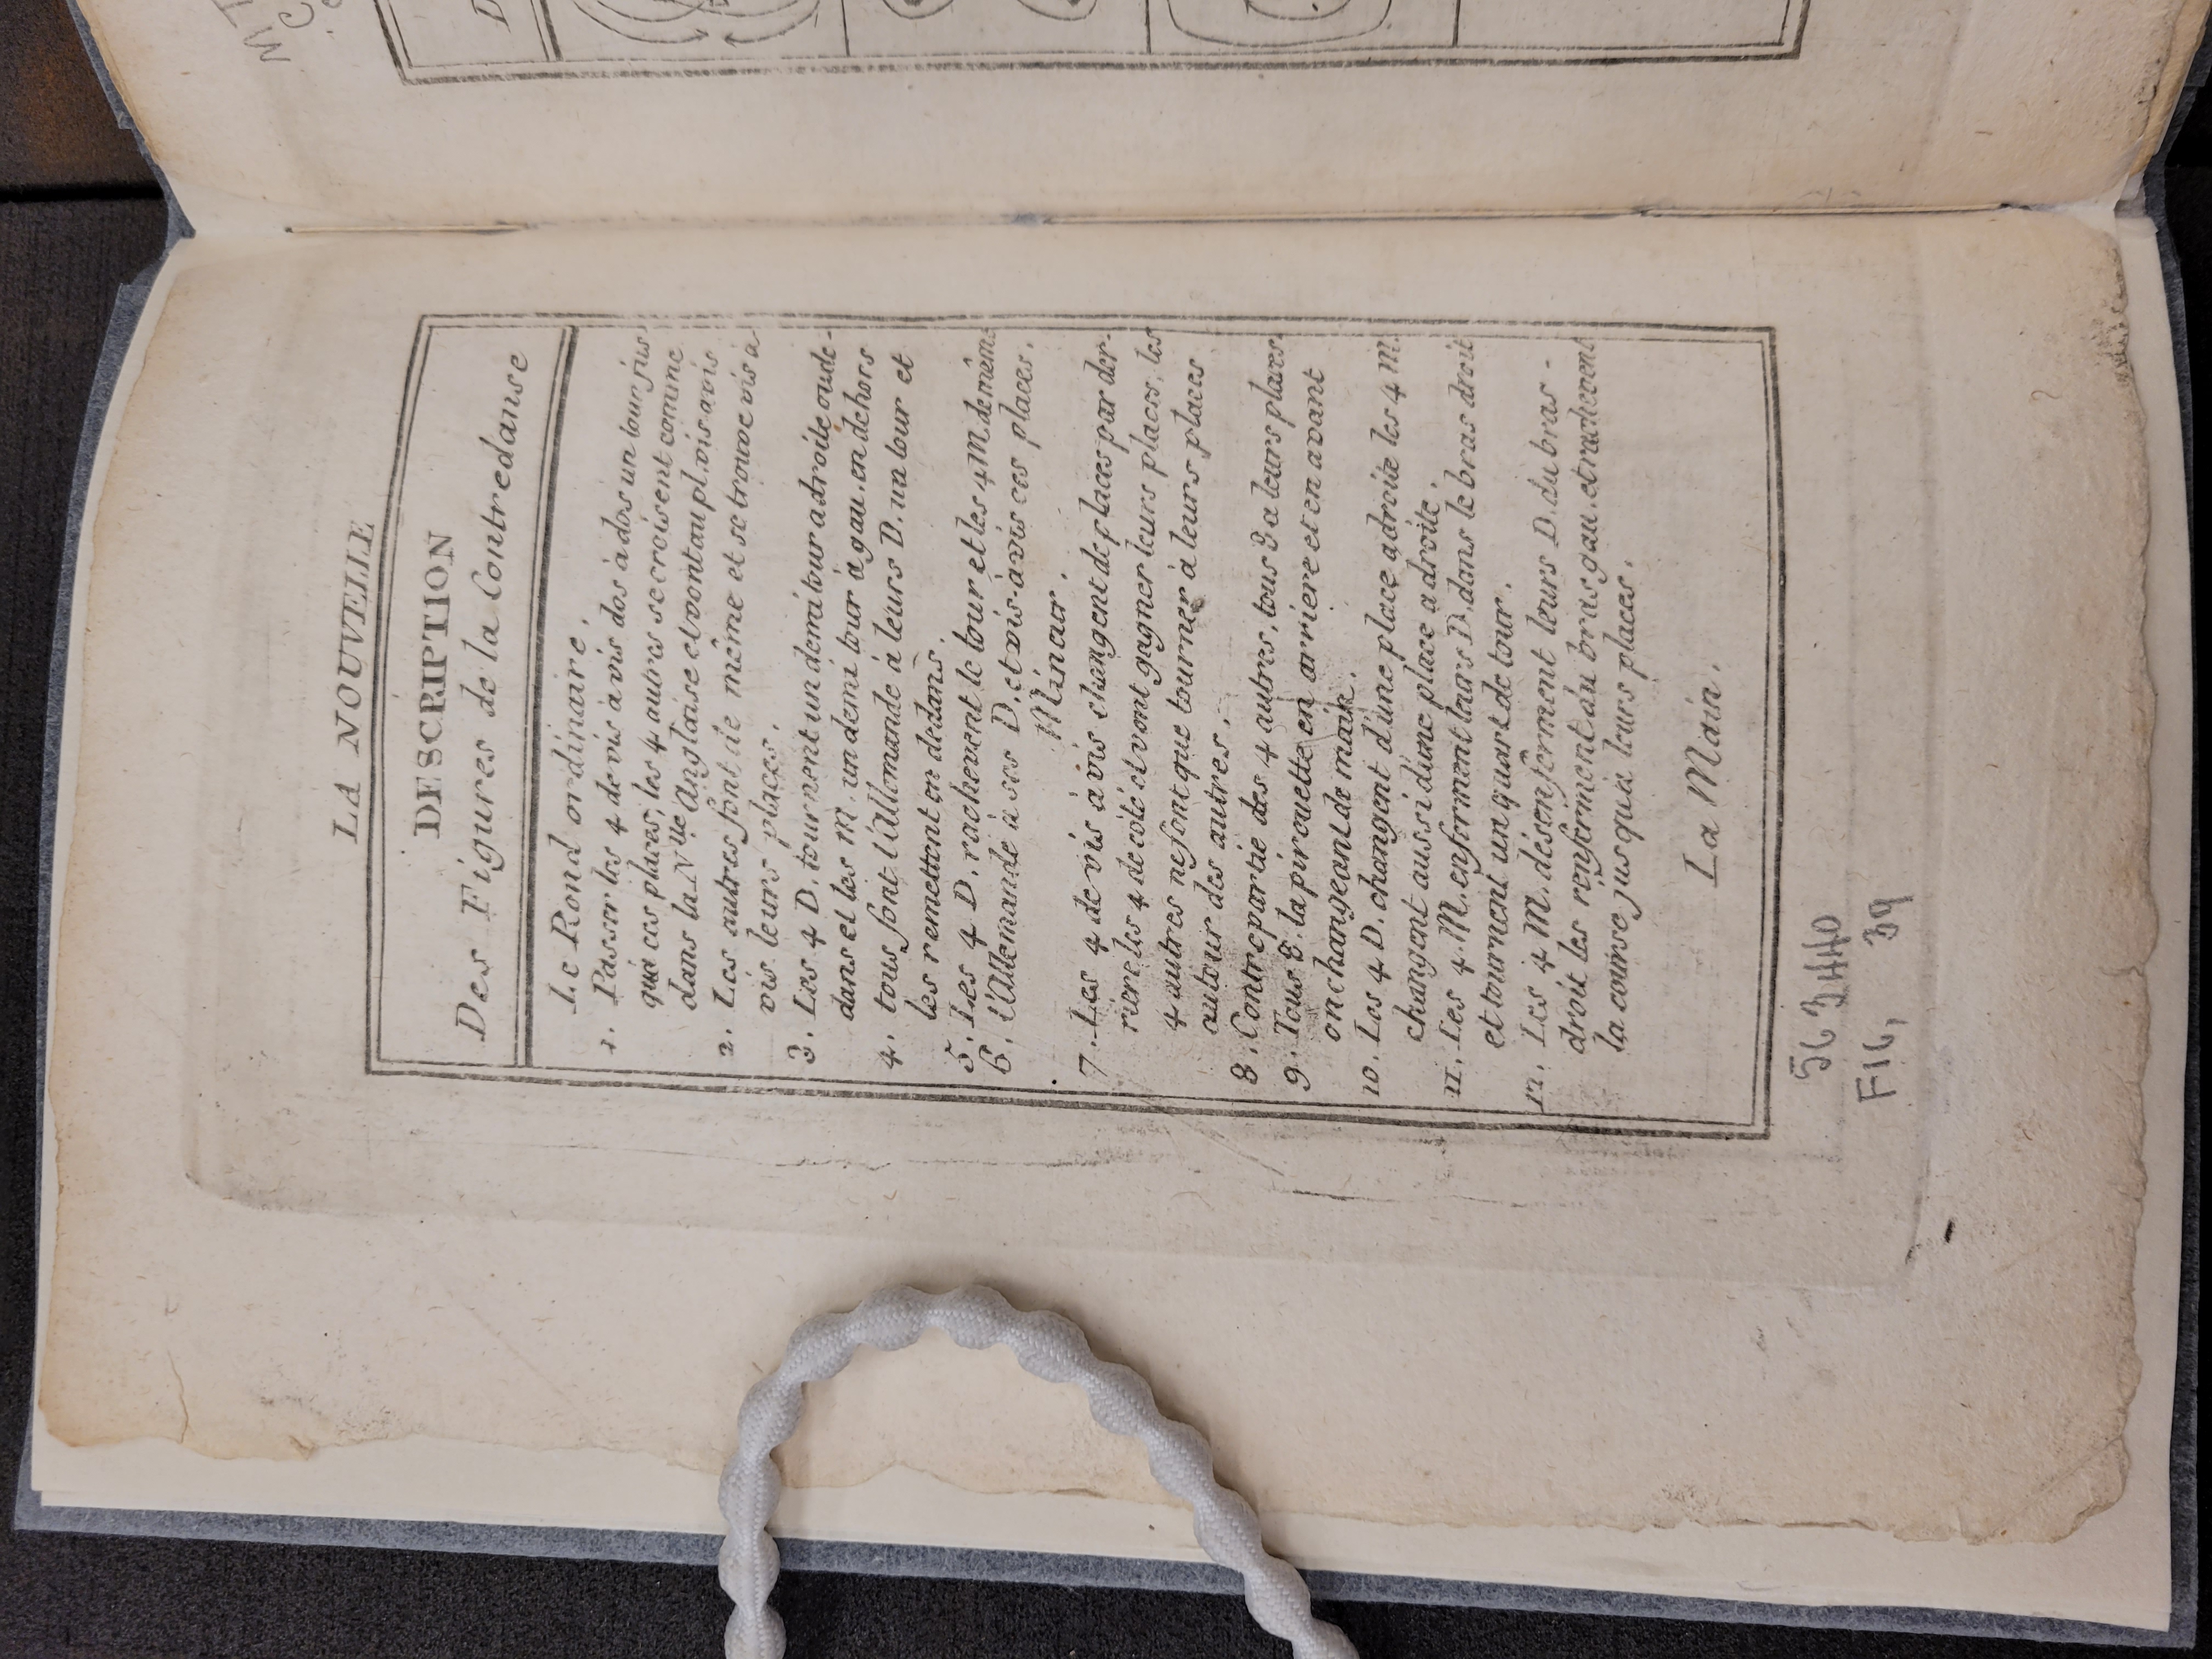 LA NOUVELLE
DESCRIPTION
Des Figures de la Contredanse
Le Rond ordinaire.
1. Passer les 4 de vis à vis dos à dos un tour jus
qu'à ces places, les 4 autres se croisent comme
dans la Nlle Anglaise et vont au pl. vis a vis
2. Les autres font de même et se trouve vis à-
vis leurs places.
3. Les 4 D. tournent un demi tour a droite en de-
dans et les M. un demi tour à gau. en dehors
4. tous font l'Allemande à leurs D. un tour et
les remettent en dedans.
5. Les 4 D. rachevent le tour et les 4 M. de même
6. l'Allemande à ses D. et vis-à vis ces places.
Mineur.
7. Les 4 de vis à vis changent de places par der-
riere les 4 de côté et vont gagner leurs places, les
4 autres ne font que tourner à leurs places
autour des autres.
8. Contrepartie des 4 autres, tous 8 a leurs places.
9. Tous 8. la pirouette en arriere et en avant
en changeant de main.
10. Les 4 D. changent d'une place a droite les 4 M.
changent aussi d'une place a droite.
11. Les 4 M. enferment leurs D. dans le bras droit
et tournent un quart de tour.
12. Les 4 M. désenferment leurs D. du bras -
droit les renferment au bras gau. et rachevent
la course jusqu'a leurs places.
La Main.
563440
FIG, 39